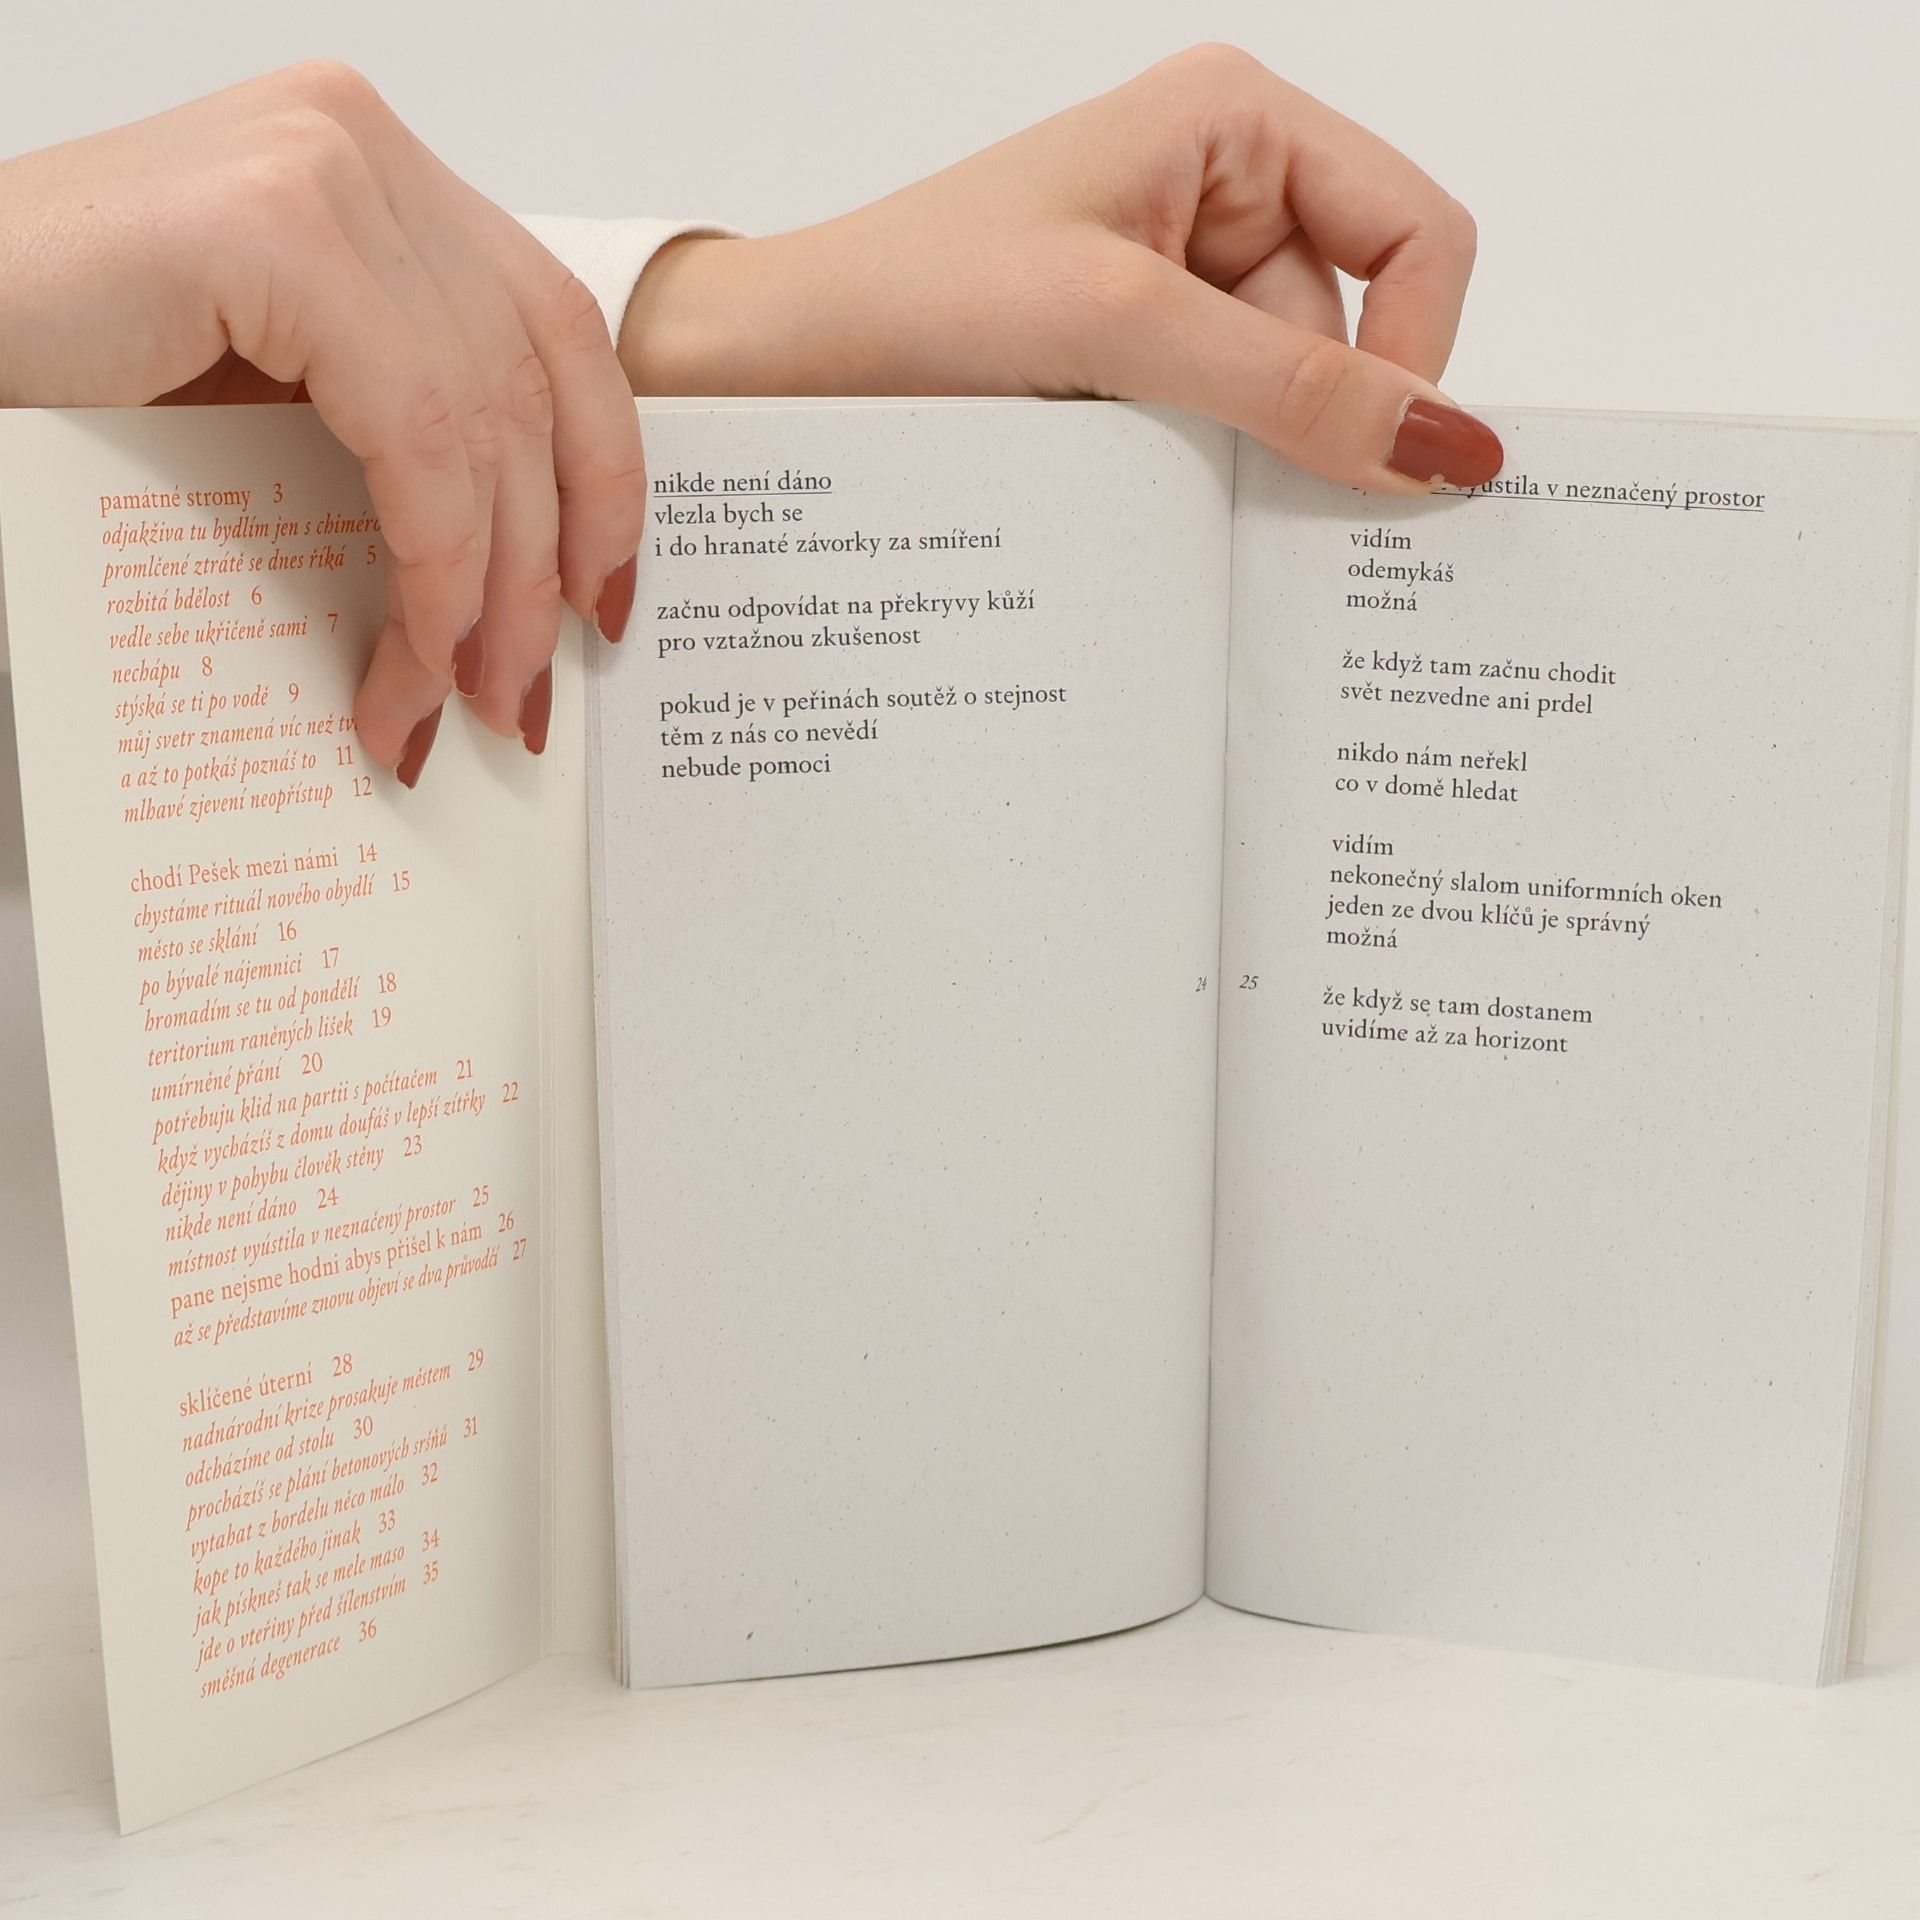 památné stromy 3
odjakživa tu bydlím jen s
promlčené ztrátě se dnes říká 5
rozbitá bdělost 6
vedle sebe ukřičeně sami 7
nechápu 8
stýská se ti po vodě 9
můj svetr znamená víc než
a až to potkáš poznáš to 11
mlhavé zjevení neopřístup 12
chodí Pešek mezi námi 14
chystáme rituál nového obydlí 15
město se sklání 16
po bývalé nájemnici 17
hromadím se tu od pondělí 18
teritorium raněných lišek 19
umírněné přání 20
potřebuju klid na partii s počítačem 21
když vycházíš z domu doufáš v lepší zítřky 22
dějiny v pohybu člověk stěny 23
nikde není dáno 24
místnost vyústila v neznačený prostor 25
pane nejsme hodni abys přišel k nám 26
až se představíme znovu objeví se dva průvodčí 27
sklíčené úterní 28
nadnárodní krize prosakuje městem 29
odcházíme od stolu 30
procházíš se plání betonových sršňů 31
vytahat z bordelu něco málo 32
kope to každého jinak 33
jak pískneš tak se mele maso 34
jde o vteřiny před šílenstvím 35
směšná degenerace 36
nikde není dáno
vlezla bych se
i do hranaté závorky za smíření
začnu odpovídat na překryvy kůží
pro vztažnou zkušenost
pokud je v peřinách soutěž o stejnost
těm z nás co nevědí
nebude pomoci
24
vyústila v neznačený prostor
vidím
odemykáš
možná
že když tam začnu chodit
svět nezvedne ani prdel
nikdo nám neřekl
co v domě hledat
vidím
nekonečný slalom uniformních oken
jeden ze dvou klíčů je správný
možná
že když se tam dostanem
uvidíme až za horizont
25